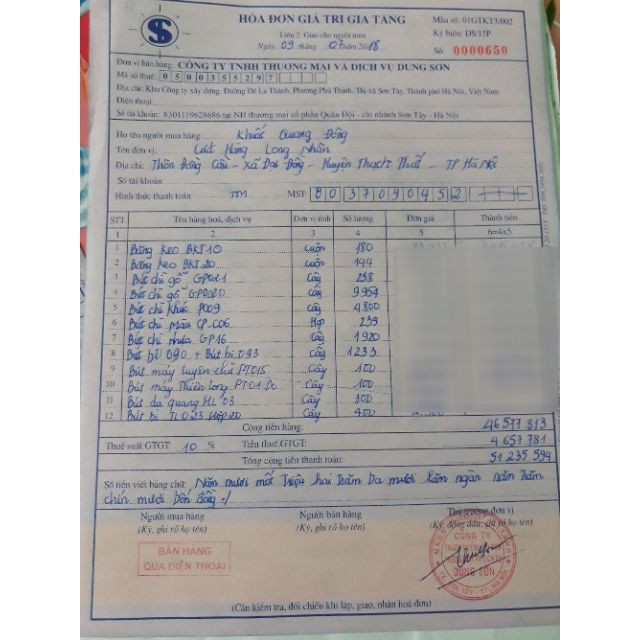 HÓA ĐƠN GIÁ TRỊ GIA TĂNG
Mẫu số: 01GTKT3/002
Liên 2: Giao cho người mua
Ký hiệu: DS/15P
Ngày 09 tháng 07 năm 2018
Số: 0000650
S
Đơn vị bán hàng: CÔNG TY TNHH THƯƠNG MẠI VÀ DỊCH VỤ DUNG SƠN
Mã số thuế: 0500355297
Địa chỉ: Khu Công ty xây dựng, Đường Đê La Thành, Phường Phú Thịnh, Thị xã Sơn Tây, Thành phố Hà Nội, Việt Nam
Điện thoại
Số tài khoản: 8301119628686 tại NH thương mại cổ phần Quân Đội - chi nhánh Sơn Tây - Hà Nội
Họ tên người mua hàng: Khuất Quang Đông
Tên đơn vị: Cửa Hàng Long Nhân
Địa chỉ: Thôn Đồng Cầu - Xã Đại Đồng - Huyện Thạch Thất - TP Hà Nội
Số tài khoản:
Hình thức thanh toán: TM MST: 8037090452
STT Tên hàng hoá, dịch vụ Đơn vị tính Số lượng Đơn giá Thành tiền
1 2 3 4 5 6=4x5
1 Băng keo BKT10 cuộn 180
2 Băng keo BKT20 cuộn 144
3 Bút chì gỗ GP011 Cây 238
4 Bút chì gỗ GP020 cây 9954
5 Bút chì khúc P009 Cây 4800
6 Bút chì màu CP-C06 Hộp 239
7 Bút chì nhựa GP16 Cây 1920
8 Bút bi 090 + Bút bi 093 Cây 1233
9 Bút máy luyện chữ PT015 Cây 100
10 Bút máy Thiên long PT01 Cây 100
11 Bút dạ quang HL 03 Cây 300
12 Bút bi TL023 Hộp20 Cây 400
Cộng tiền hàng: 46 577 813
Thuế suất GTGT: 10 % Tiền thuế GTGT: 4 657 781
Tổng cộng tiền thanh toán: 51 235 594
Số tiền viết bằng chữ: Năm mươi mốt Triệu hai Trăm ba mươi lăm ngàn năm Trăm
chín mươi bốn đồng ./
Người mua hàng Người bán hàng Thủ trưởng đơn vị
(Ký, ghi rõ họ tên) (Ký, ghi rõ họ tên) (Ký, đóng dấu, ghi rõ họ tên)
BÁN HÀNG
QUA ĐIỆN THOẠI
CÔNG TY
DUNG SƠN
(Cần kiểm tra, đối chiếu khi lập, giao, nhận hoá đơn)